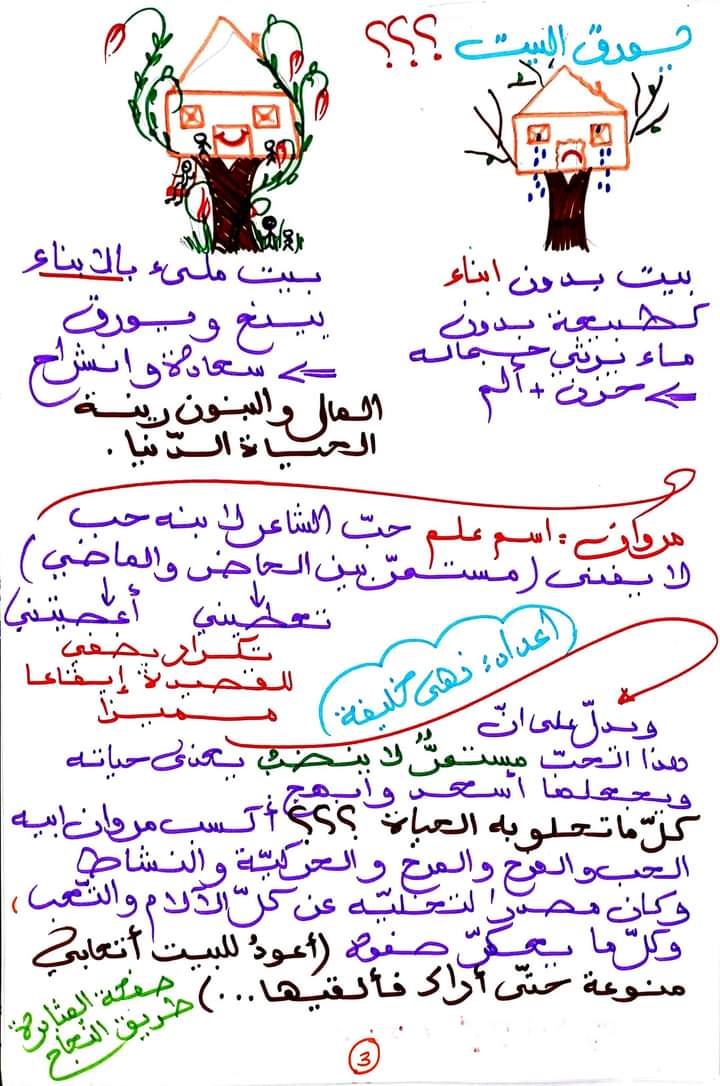 يورق البيت ؟؟؟
بيت بدون ابناء
كطبيعة بدون
ماء يرثي جماله
⇐ حزن + ألم
بيت مليء بالأبناء
يينع ويورق
⇐ سعادة وانشراح
المال والبنون زينة
الحياة الدّنيا.
مروان: اسم علم حبّ الشاعر لابنه حب
لا يفنى (مستمرّ بين الحاضر والماضي)
تعطيني أعطيتني
تكرار يضفي
للقصيدة إيقاعا
مميزا
اعداد: نهى خليفة
ويدلّ على انّ
هذا الحبّ مستمرٌّ لا ينضب يعني حياته
ويجعلها أسعد وابهج
كلّ ما تحلو به الحياة ؟؟؟ أكسب مروان ابيه
الحب والفرح والمرح والحركيّة والنشاط
وكان مصدرا لتخليّه عن كلّ الآلام والتّعب،
وكلّ ما يعكّر صفوه (أعودُ للبيت أتعابي
منوعة حتّى أراك فألقيها...)
صفحة المثابرة
طريق النجاح
3